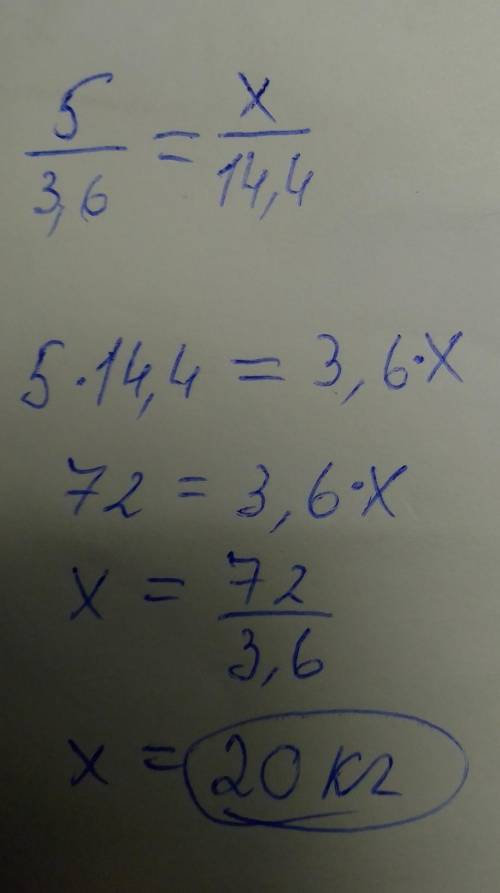 5/3,6 = x/14,4
5·14,4 = 3,6·x
72 = 3,6·x
x = 72/3,6
x = 20 кг